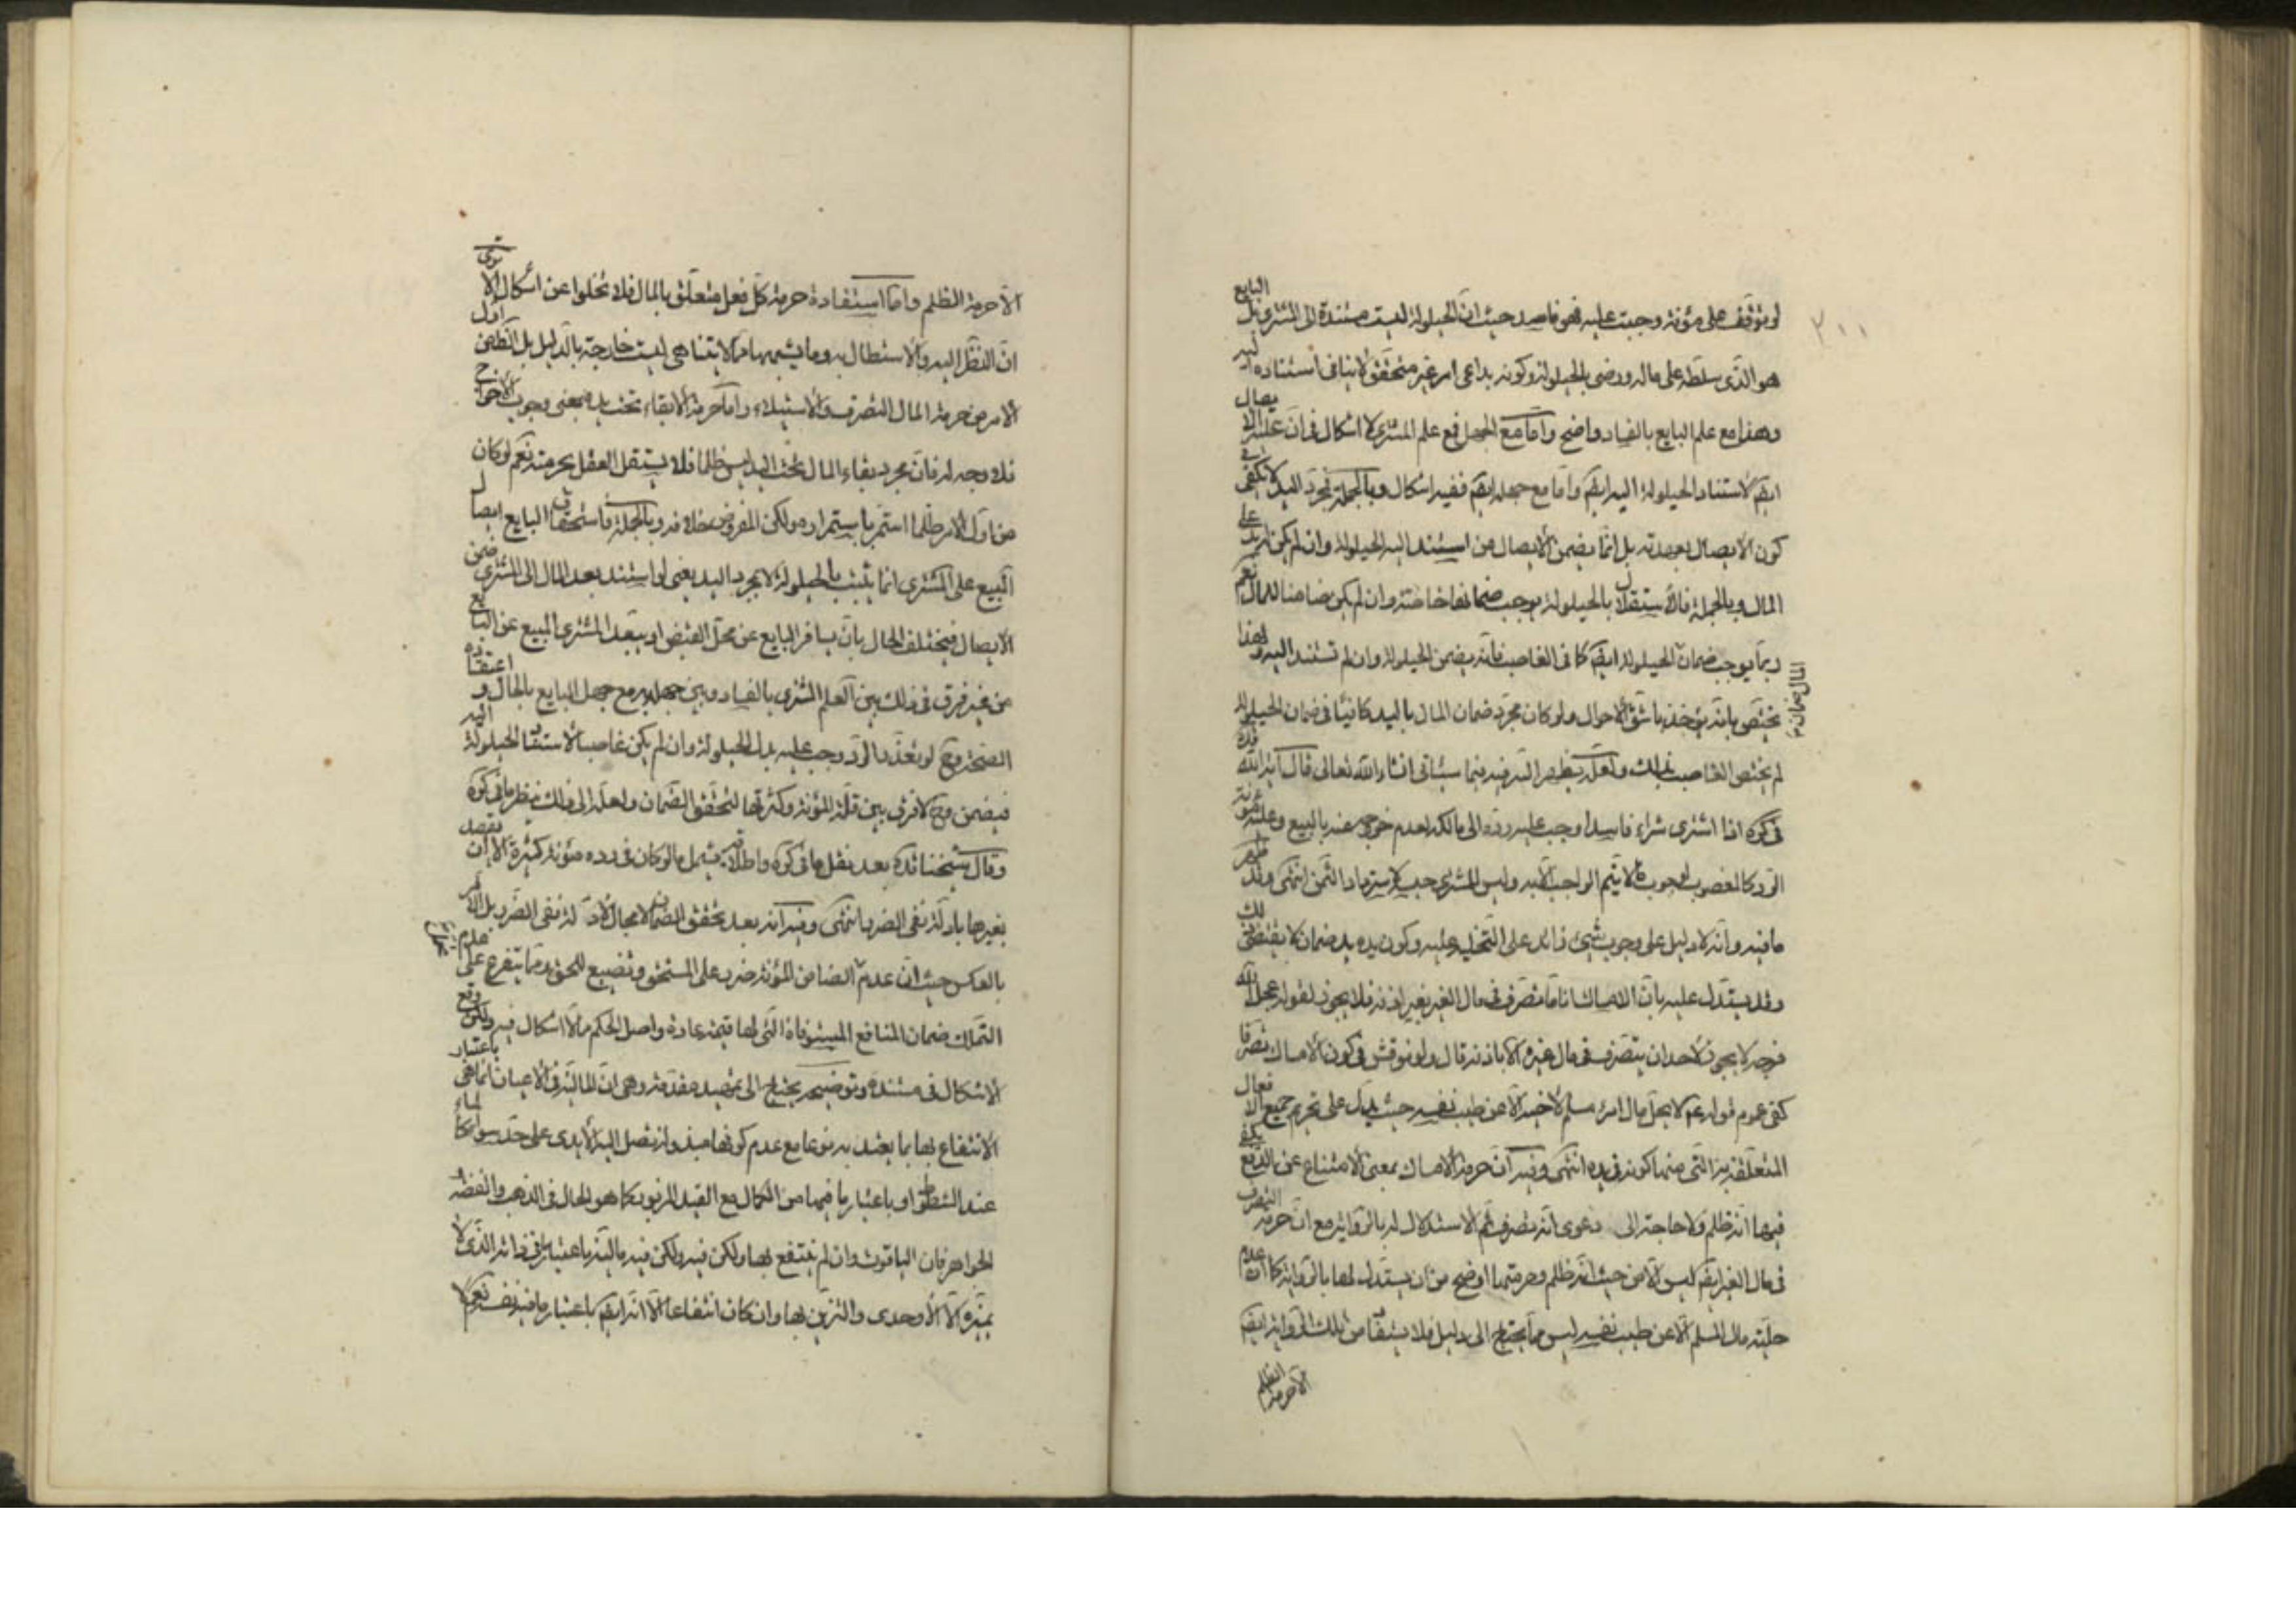 ٢١١
لو توقف على مؤنة وجبت عليه فهو فاسد حيث ان الحيلولة ليست مستندة الى المشترى بل البايع
هو الذى سلطه على ماله ورضى بالحيلولة وكونه بداعى امر غير متحقق لا ينافى استناده اليه
وهذا مع علم البايع بالفساد واضح وامّا مع الجهل فمع علم المشترى لا اشكال فى ان عليه الايصال
ايضا لاستناد الحيلولة اليه ايضا وامّا مع جهله ايضا ففيه اشكال وبالجملة فمجرد اليد لا يكفى فى
كون الايصال بعهدته بل انما يضمن الايصال من استند اليه الحيلولة وان لم يكن له يد على
المال وبالجملة فالاستقلال بالحيلولة يوجب ضمانها خاصّة وان لم يكن ضامنا للمال نعم
ربما يوجب ضمان المال ضمان الحيلولة ايضا كما فى الغاصب فانه يضمن الحيلولة وان لم تستند اليه ولهذا
يختص بانه يؤخذ باشق الاحوال ولو كان مجرد ضمان المال باليد كافيا فى ضمان الحيلولة
لم يختص الغاصب بذلك ولعله يظهر السر فيه فيما سيأتى انشاء الله تعالى قال اية الله قده
فى كره اذا اشترى شراء فاسدا وجب عليه رده الى مالكه لعدم خروجه عنه بالبيع وعليه مؤنة
الرد كالمغصوب لوجوب ما لا يتم الواجب الا به وليس للمشترى حبسه لاسترداد الثمن انتهى وقد ظهر
ما فيه وانه لا دليل على وجوب شىء زائد على التخلية عليه وكون يده يد ضمان لا يقتضى ذلك
وقد يستدل عليه بان الامساك اناما تصرف فى مال الغير بغير اذنه فلا يجوز لقوله عجل الله
فرجه لا يجوز لاحد ان يتصرف فى مال غيره الا باذنه قال ولو نوقش فى كون الامساك تصرفا
كفى عموم قوله ع لا يحل مال امرء مسلم لاخيه الا عن طيب نفسه حيث يدل على تحريم جميع الافعال
المتعلقة به التى منها كونه فى يده انتهى وفيه ان حرمة الامساك بمعنى الامتناع عن الدفع يكفى
فيها انه ظلم ولا حاجة الى دعوى انه تصرف ثم الاستدلال له بالرواية مع ان حرمة التصرف
فى مال الغير ايضا ليس الا من حيث انه ظلم وحرمتها اوضح من ان يستدل لها بالرواية كما ان عدم
حلية مال المسلم الا عن طيب نفسه ليس مما يحتاج الى دليل فلا يستفاد من تلك الرواية ايضا
الا حرمة الظلم
الا حرمة الظلم وامّا استفادة حرمة كل فعل متعلق بالمال فلا تخلوا عن اشكال الا ترى
ان النظر اليه والاستظلال به وما يشبهها مما لا يتناهى ليست خارجة بالدليل بل الظهر من اول
الامر من حرمة المال التصرف والاستيلاء وامّا حرمة الابقاء تحت يده بمعنى وجوب الاخراج
فلا وجه له فان مجرد بقاء المال تحت اليد ليس ظلما فلا يستقل العقل بحرمته نعم لو كان
من اول الامر ظلما استمر باستمراره ولكن المفروض خلافه وبالجملة فاستحقاق البايع ايصال
المبيع على المشترى انما يثبت بالحيلولة لا بمجرد اليد يعنى لو استند بعد المال الى المشترى ضمن
الايصال فيختلف الحال بان يسافر البايع عن محل القبض او يبعد المشترى المبيع عن البايع
من غير فرق فى ذلك بين العلم المشترى بالفساد وبين جهله به مع جهل البايع بالحال و اعتقاده
الصحة وح لو تعذر الرد وجب عليه بدل الحيلولة وان لم يكن غاصبا لاستناد الحيلولة اليه
فيضمن وح لا فرق بين قلة المؤنة وكثرتها لتحقق الضمان ولعله الى ذلك ينظر ما فى كره
وقال شيخنا قده بعد نقل ما فى كره واطلاقه يشمل ما لو كان فى رده مؤنة كثيرة الا ان يقيد
بغيرها بادلة نفى الضرر انتهى وفيه انه بعد تحقق الضمان لا مجال لادلة نفى الضرر بل الامر
بالعكس حيث ان عدم الضامن للمؤنة ضرر على المستحق وتضييع للحق ومما يتفرع على عدم
التملك ضمان المنافع المستوفاة التى لها قيمة عادة واصل الحكم مما لا اشكال فيه ولكن وقع
الاشكال فى مستنده وتوضيحه يحتاج الى تمهيد مقدمة وهى ان المالية فى الاعيان انما هى باعتبار
الانتفاع بها بما يعتد به نوعا مع عدم كونها مبذولة تصل اليه الايدى على حد سواء كالماء
عند الشطوط او باعتبار ما فيها من الكمال مع القيد المزبور كما هو الحال فى الذهب والفضة
الجواهر فان الياقوت وان لم ينتفع بها ولكن فيه ولكن فيه مالية باعتبار ما فى ذاته الذى لا
يميزه الا الاوحدى والتزين بها وان كان انتفاعا الا انه ايضا باعتبار ما فيه نفسه نعم لا